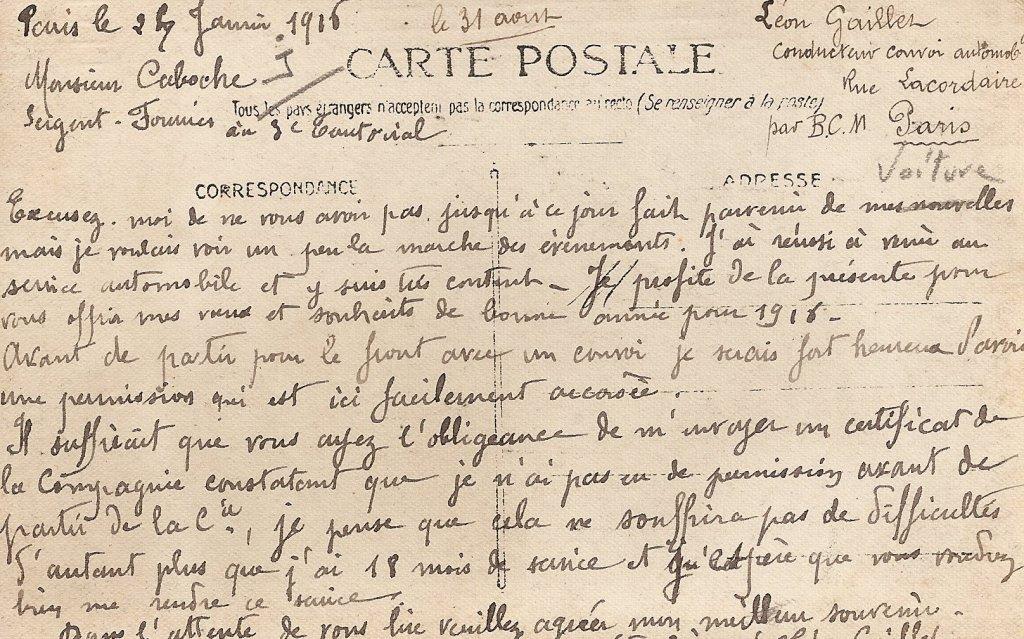 Paris le 27 Janvier 1916
le 31 aout
Léon Gaillet
Conducteur convoi automob
Rue Lacordaire
par B.C.M Paris
Voiture
Monsieur Caboche
Sergent - Fourrier
au 3e Territorial
CARTE POSTALE
Tous les pays étrangers n'acceptent pas la correspondance au recto (Se renseigner à la poste)
CORRESPONDANCE
ADRESSE
Excusez-moi de ne vous avoir pas jusqu'à ce jour fait parvenir de mes nouvelles
mais je voulais voir un peu la marche des évènements. J'ai réussi à venir au
service automobile et y suis très content - Je profite de la présente pour
vous offrir mes vœux et souhaits de bonne année pour 1916 -
Avant de partir pour le front avec un convoi je serais fort heureux d'avoir
une permission qui est ici facilement accordée.
Il suffirait que vous ayez l'obligeance de m'envoyer un certificat de
la Compagnie constatant que je n'ai pas eu de permission avant de
partir de la Cie, je pense que cela ne souffrira pas de difficultés
d'autant plus que j'ai 18 mois de service et que vous voudrez
bien me rendre ce service.
Dans l'attente de vous lire veuillez agréer mon meilleur souvenir.